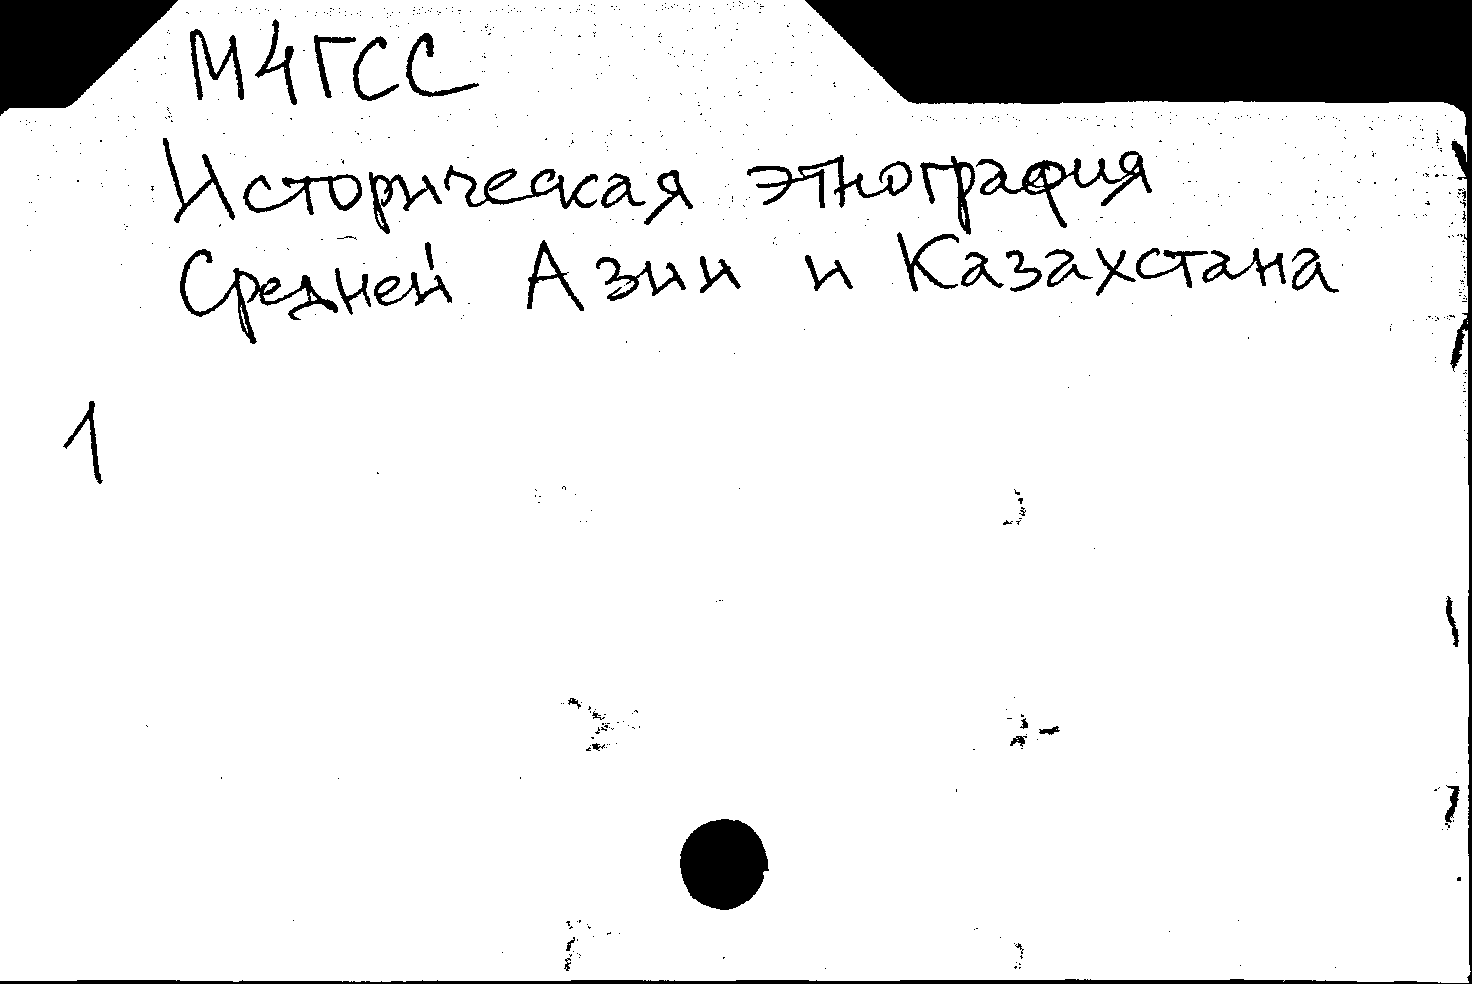 М4ГСС
Историческая этнография
Средней Азии и Казахстана
1